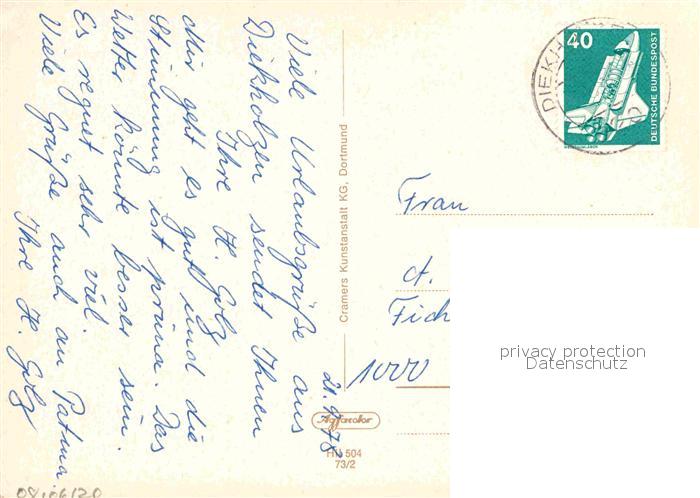 Viele Urlaubsgrüße aus
Diekholzen sendet Ihnen
Ihre H. Golz
Mir geht es gut und die
Stimmung ist prima. Das
Wetter könnte besser sein.
Es regnet sehr viel.
Viele Grüße auch an
Ihre H. Golz
21.9.78
Cramers Kunstanstalt KG, Dortmund
Agfacolor
HU 504
73/2
DIEKH
40
DEUTSCHE BUNDESPOST
Frau
A.
Fich
1000
privacy protection
Datenschutz
08:06/20